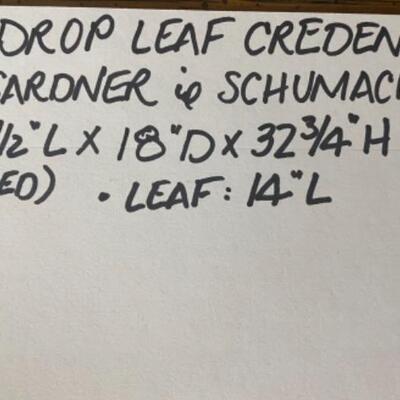 DROP LEAF CREDEN
GARDNER & SCHUMAC
1/2"L X 18"D X 32 3/4"H
ED) • LEAF: 14"L